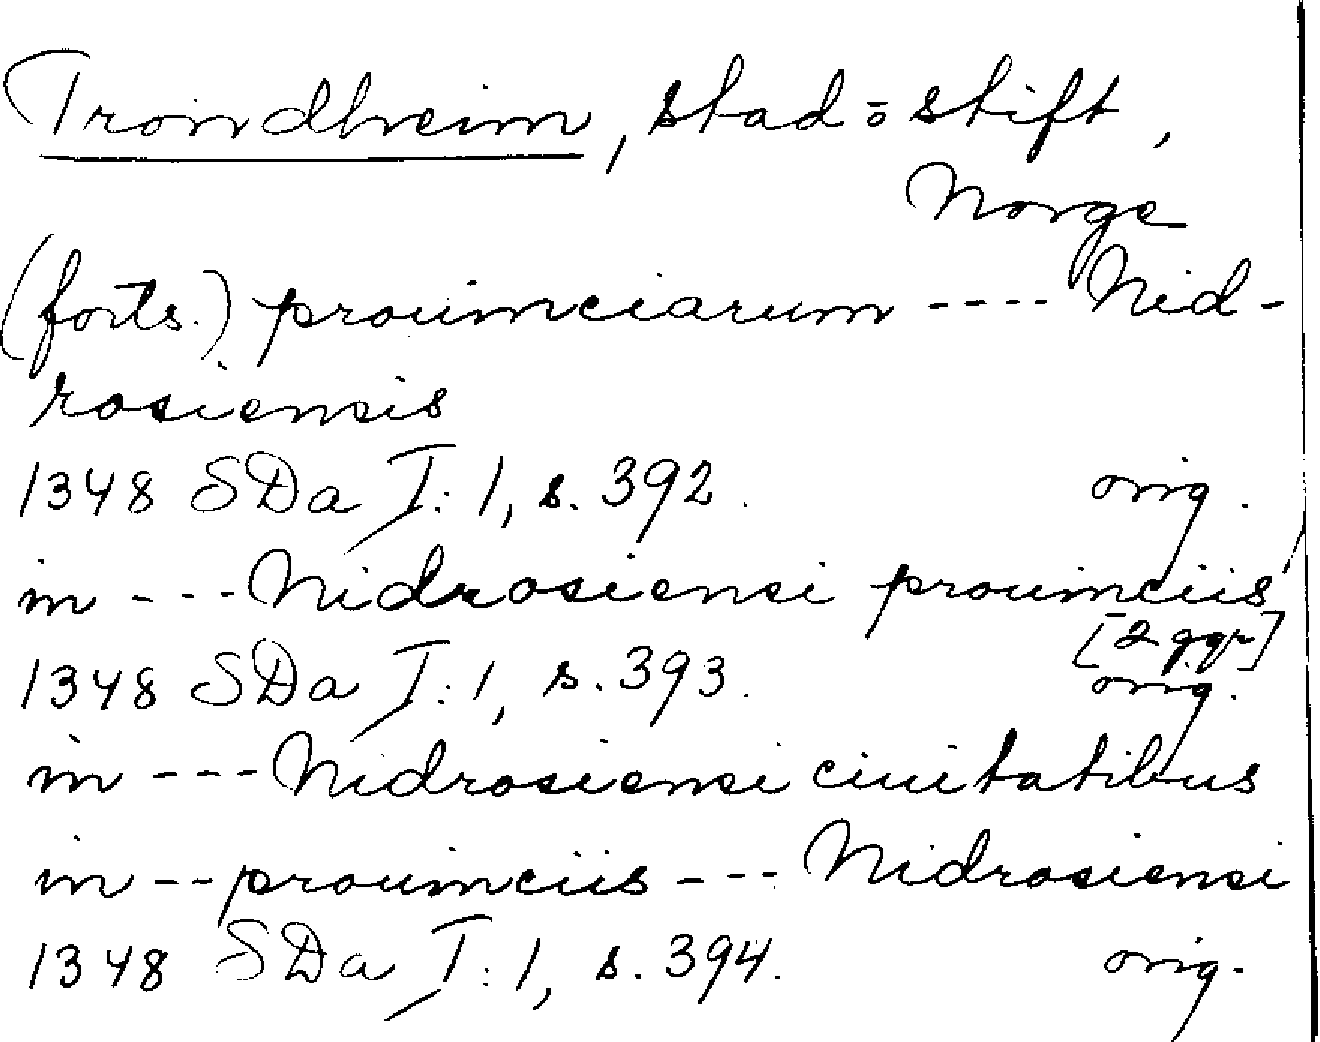 Trondheim, stad o stift,
Norge
(forts.) prouinciarum ---- Nid-
rosiensis
1348 SDa I:1, s. 392. orig.
in --- Nidrosiensi prouinciis
[2 ggr]
1348 SDa I:1, s. 393. orig.
in --- Nidrosiensi ciuitatibus
in -- prouinciis --- Nidrosiensi
1348 SDa I:1, s. 394. orig.